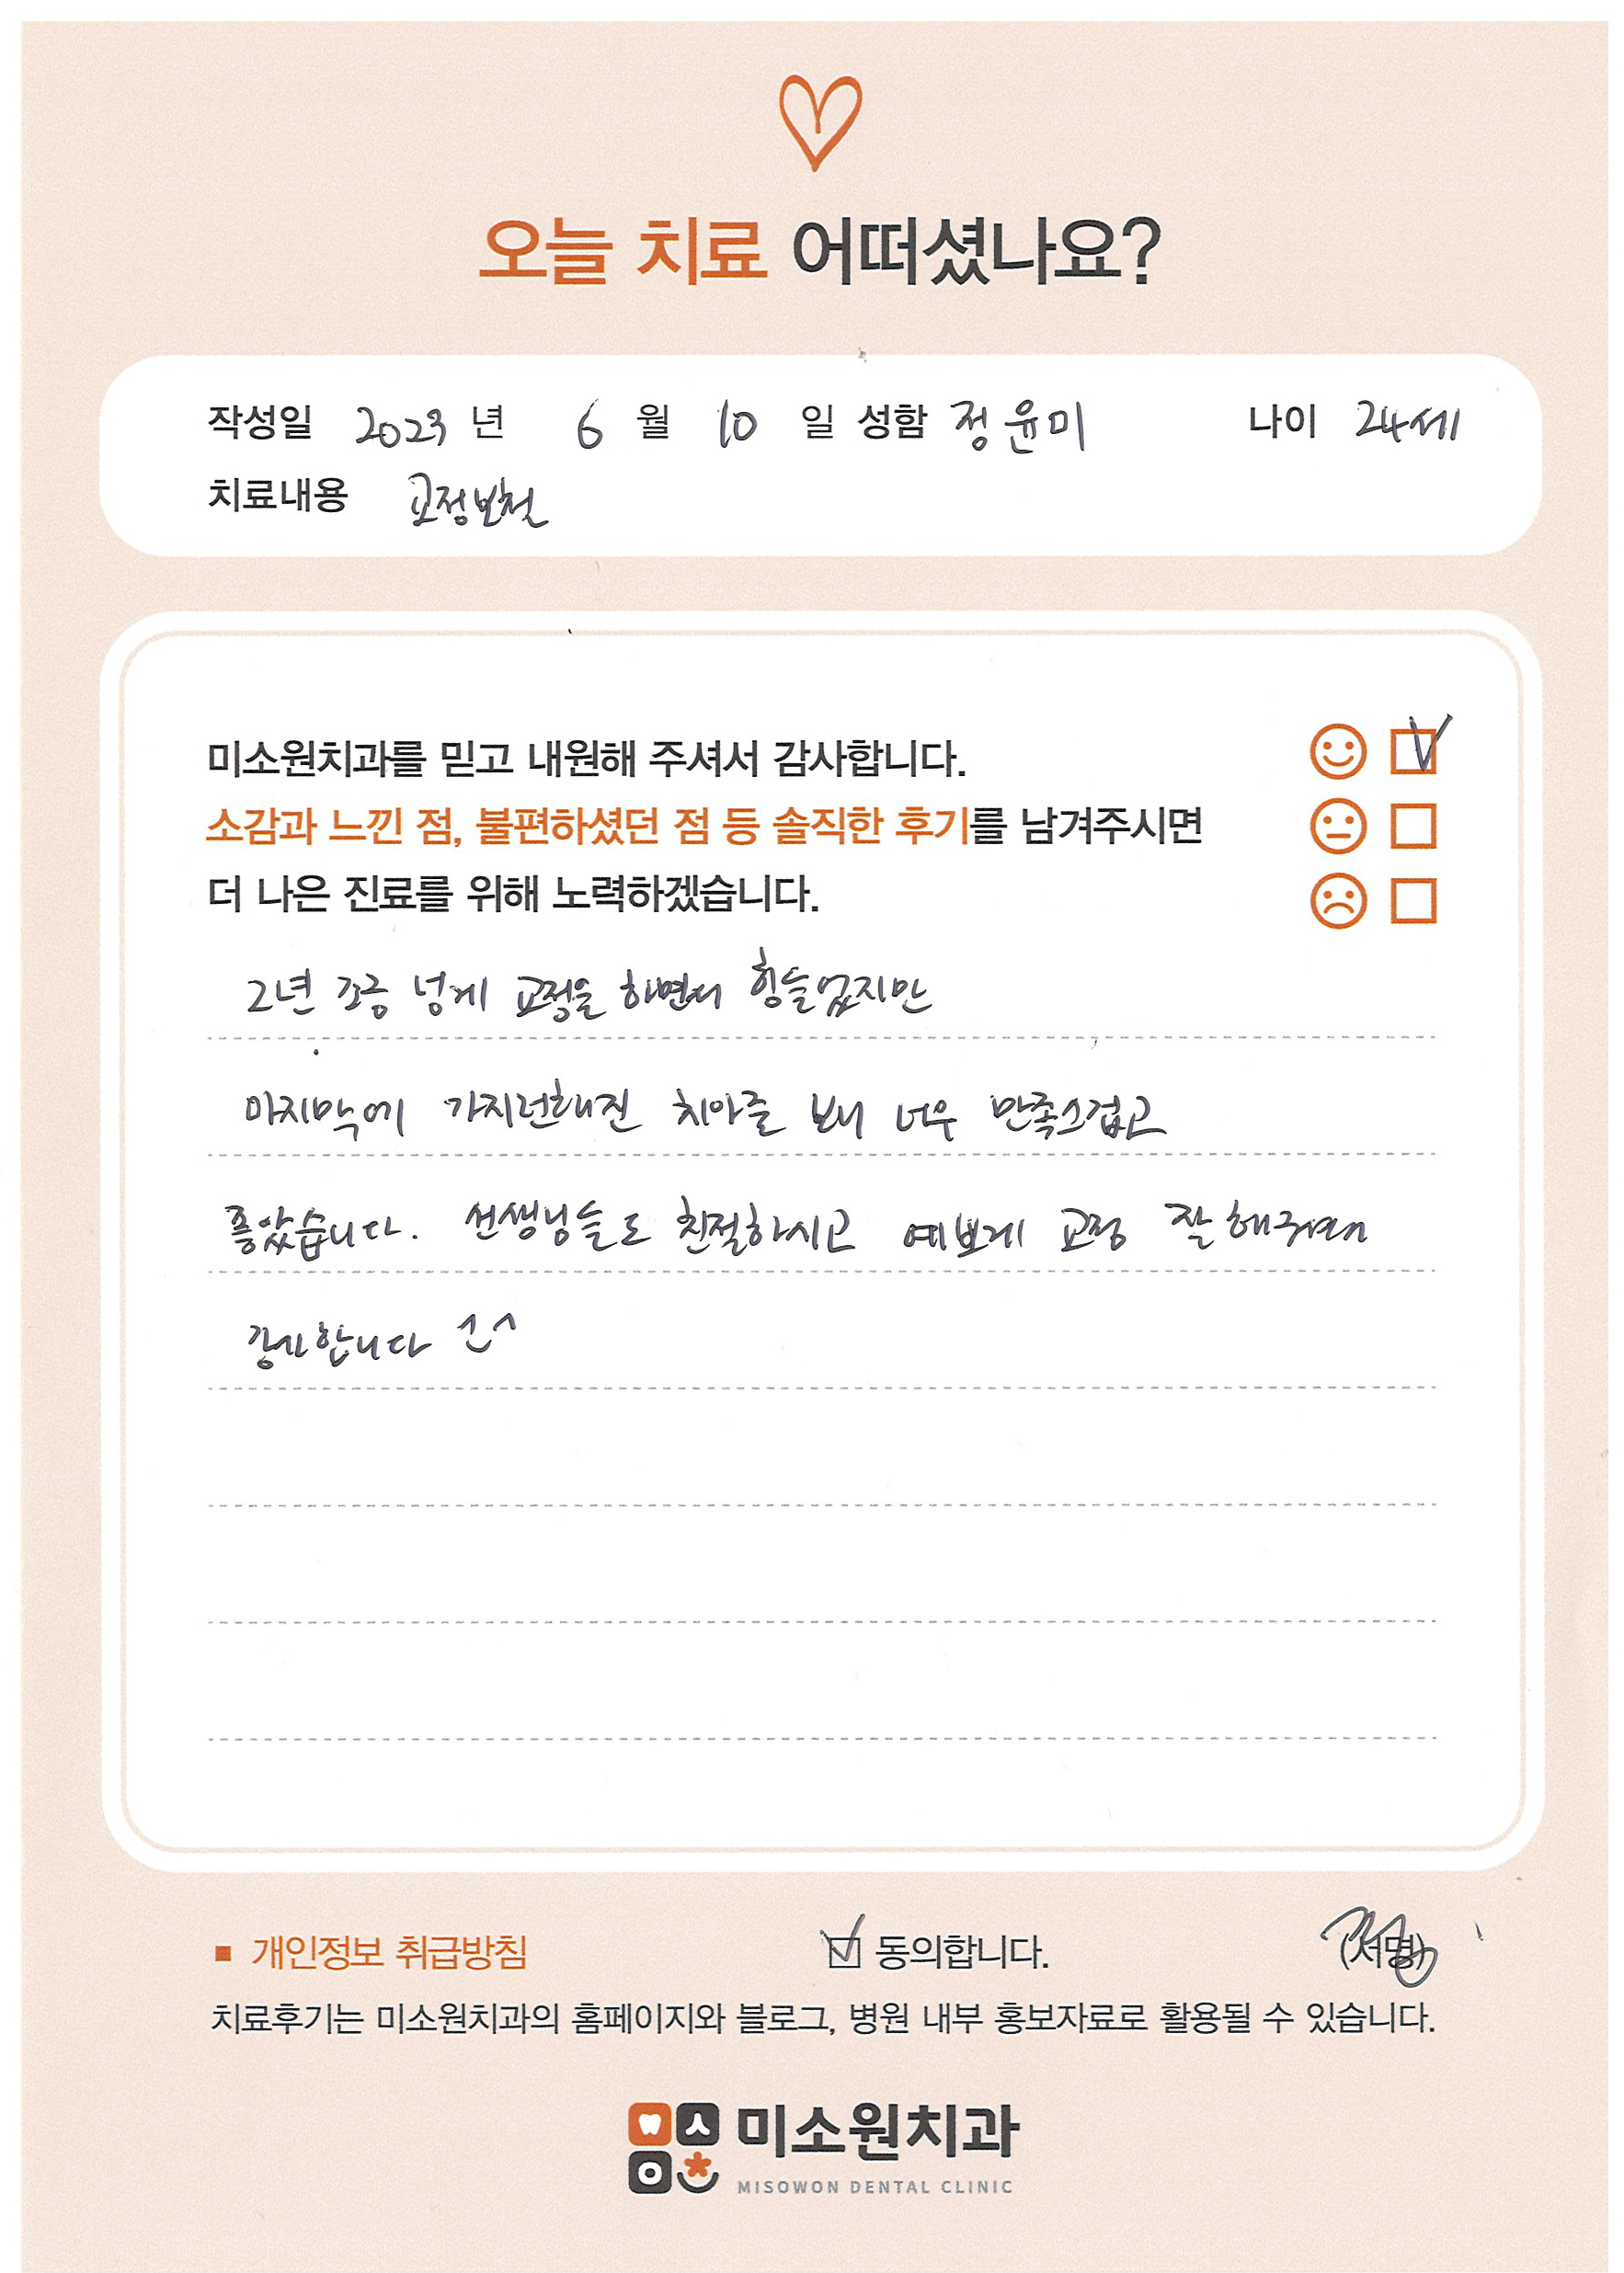 오늘 치료 어떠셨나요?
작성일 2023 년 6 월 10 일 성함 정윤미 나이 24세
치료내용 교정보철
미소원치과를 믿고 내원해 주셔서 감사합니다.
소감과 느낀 점, 불편하셨던 점 등 솔직한 후기를 남겨주시면
더 나은 진료를 위해 노력하겠습니다.
2년 조금 넘게 교정을 하면서 힘들었지만
마지막에 가지런해진 치아를 보니 너무 만족스럽고
좋았습니다. 선생님들도 친절하시고 예쁘게 교정 잘 해주셔서
감사합니다 ^^
■ 개인정보 취급방침 동의합니다. (서명)
치료후기는 미소원치과의 홈페이지와 블로그, 병원 내부 홍보자료로 활용될 수 있습니다.
미소원치과
MISOWON DENTAL CLINIC